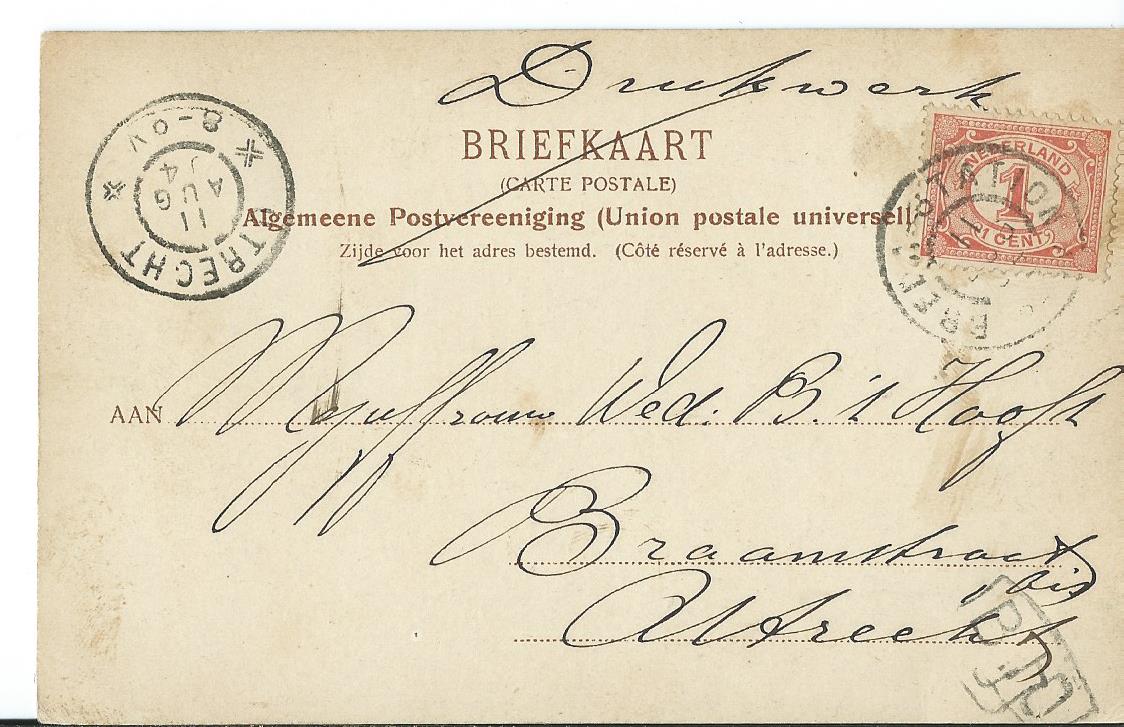 Drukwerk
BRIEFKAART
(CARTE POSTALE)
Algemeene Postvereeniging (Union postale universell
Zijde voor het adres bestemd. (Côté réservé à l'adresse.)
TRECHT
8-9V
11
AUG
04
NEDERLAND
1
1 CENT
STATION
BRED
AAN Mejuffrouw Wed: B. 't Hooft
Braamstraat
bis
Utrecht